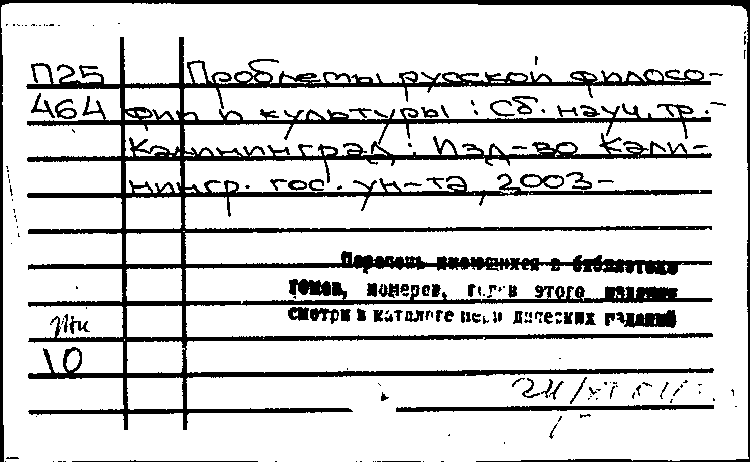 П25 Проблемы русской филосо-
464 фии и культуры : Сб. науч. тр.-
Калининград : Изд-во Кали-
нингр. гос. ун-та, 2003-
Перечень имеющихся в библиотеке
томов, номеров, годов этого издания
смотри в каталоге периодических изданий
10